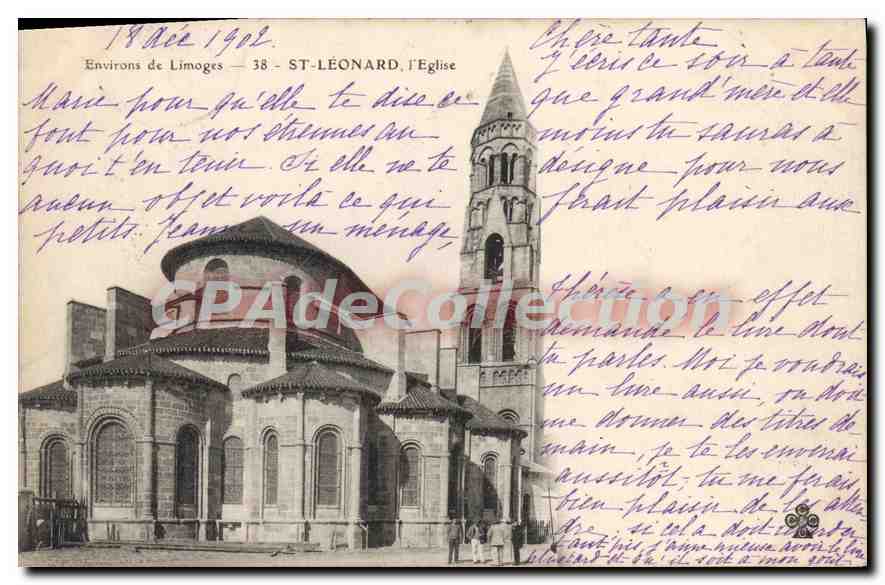 18 déc 1902.
Environs de Limoges — 38 - ST-LÉONARD, l'Eglise
Chère tante
J'écris ce soir à tante
Marie pour qu'elle te dise ce
que grand'mère et elle
font pour nos étrennes au
moins tu sauras à
quoi t'en tenir. Si elle ne te
désigne pour nous
aucun objet voilà ce qui
ferait plaisir aux
petits. Jeanne un ménage,
Thérèse a en effet
demandé le livre dont
tu parles. Moi je voudrais
un livre aussi, on doit
me donner des titres de
main, je te les enverrai
aussitôt, tu me ferais
bien plaisir de les atten
dre, si cela doit retarder
tant pis, j'aime mieux avoir le livre
plus tard et qu'il soit à mon goût
CPA De Collection